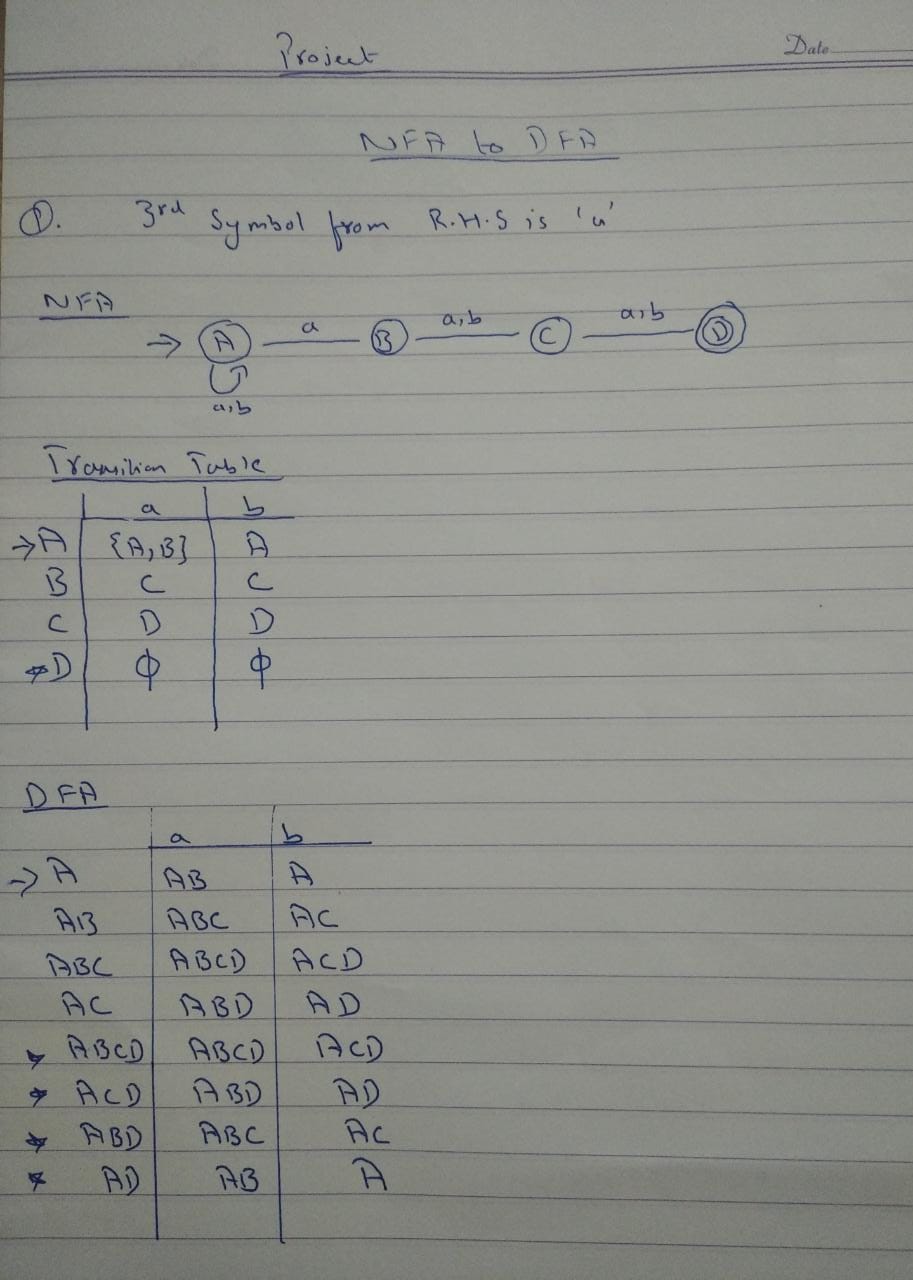 Project
Date
NFA to DFA
①. 3rd Symbol from R.H.S is 'a'
NFA
→ A a B a,b C a,b D
a,b
Transition Table
a b
→A {A,B} A
B C C
C D D
*D ϕ ϕ
DFA
a b
→ A AB A
AB ABC AC
ABC ABCD ACD
AC ABD AD
* ABCD ABCD ACD
* ACD ABD AD
* ABD ABC AC
* AD AB A